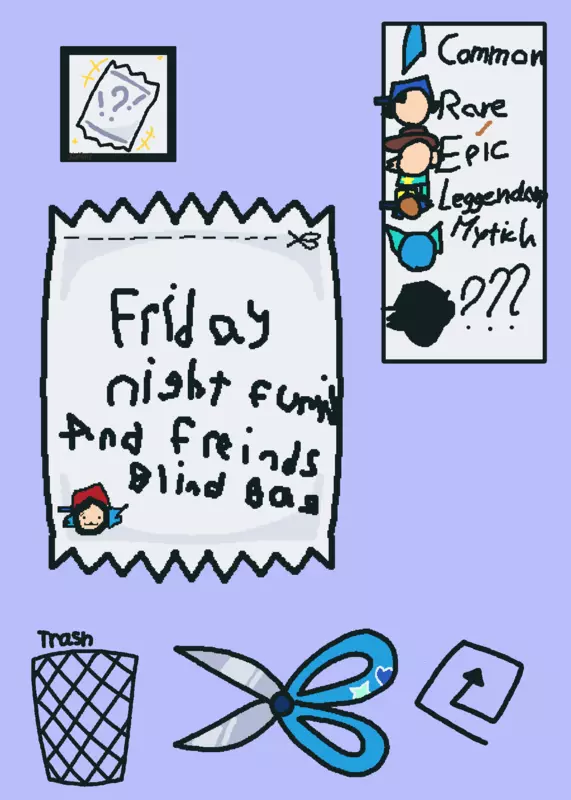 !?!
Common
Rare
Epic
Leggendary
Mytich
???
Friday
night funni
And freinds
Blind Bag
Trash